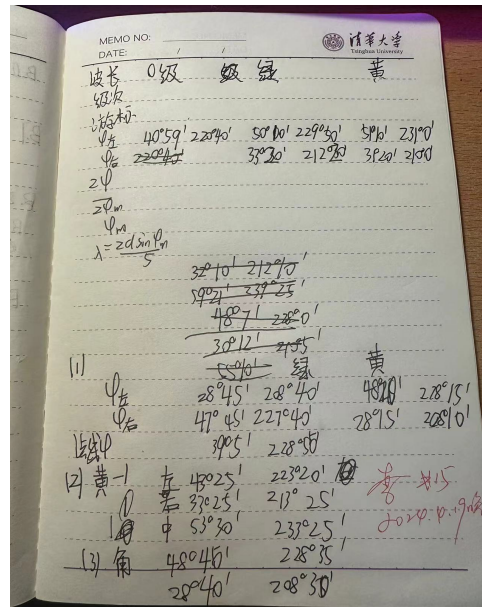 MEMO NO:
清华大学
Tsinghua University
DATE: / /
波长 0级 绿 黄
级次
游标
φ左 40°59′ 220°40′ 50°10′ 229°50′ 51°10′ 231°0′
φ右 33°20′ 212°30′ 31°20′ 210°0′
2φ
2φm
φm
λ=2dsinφm/5
32°10′ 212°10′
59°21′ 239°25′
48°7′ 228°0′
30°12′
55°10′
(1) 绿 黄
φ左 28°45′ 208°40′ 48°20′ 228°15′
φ右 47°45′ 227°40′ 28°15′ 208°10′
39°5′ 228°50′
(2) 黄-1 左 43°25′ 223°20′
0 右 33°25′ 213°25′
1 中 53°30′ 233°25′
(3) 角 48°40′ 228°35′
28°40′ 208°30′